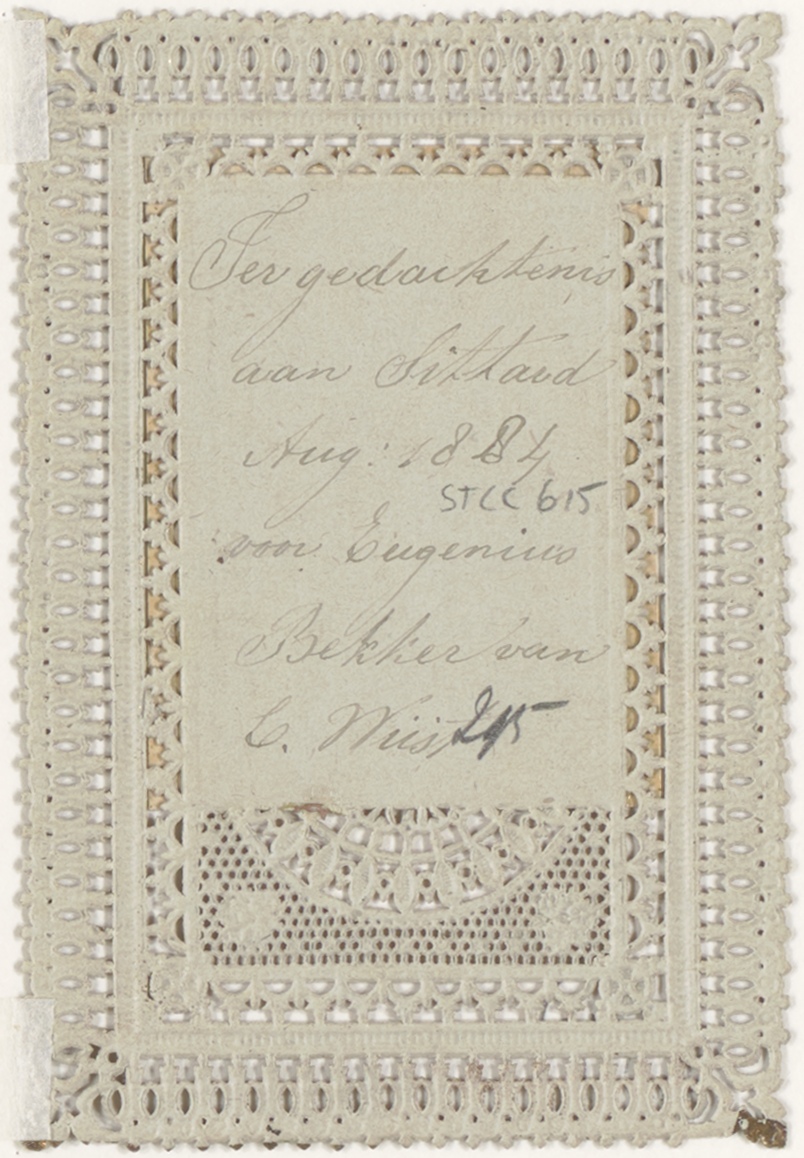 Ter gedachtenis
aan Sittard
Aug: 1884
STCC 615
voor Eugenius
Bekker van
C. Wüst
215